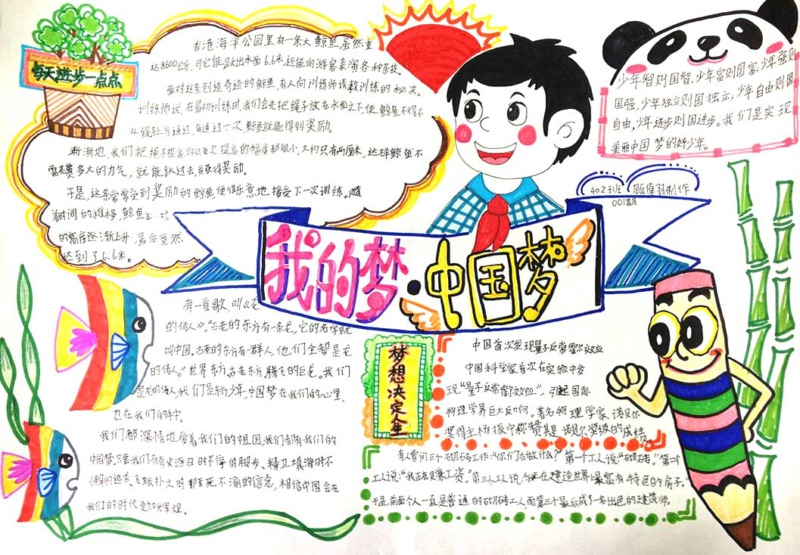 每天进步一点点
香港海洋公园里有一条大鲸鱼,虽然重
达8600公斤,可它能跃出水面6.6米,还能向游客表演各种杂技。
面对这条创造奇迹的鲸鱼,有人向训练师请教训练的秘诀。
训练师说:在最初训练时,我们会先把绳子放在水面之下,使鲸鱼不得不
从绳子上通过,每通过一次,鲸鱼就能得到奖励。
渐渐地,我们把绳子提高,
只有两厘米,这样鲸鱼不
需花费多大的力气,就能跃过去并获得奖励。
于是,这条常常受到奖励的鲸鱼,便很乐意地接受下一次训练。随
着时间的推移,鲸鱼
的高度逐渐上升,最后竟然
达到了6.6米。
少年智则国智,少年富则国富,少年强则
国强,少年独立则国独立,少年自由则国
自由,少年进步则国进步。我们是实现
美丽中国梦的好少年。
402班
制作
001期
我的梦·中国梦
有一首歌,叫《龙
的传人》。"古老的东方有一条龙,它的名字就
叫中国。古老的东方有一群人,他们全都是龙
的传人。"
我们
中国梦在我们的心里,
也在我们的
我们都深情地爱着我们的祖国,我们都有我们的
中国梦,
相信中国会在
我们的时代
梦想决定人生
中国首次发现量子反常霍尔效应
中国科学家首次在实验中发
现"量子反常霍尔效应",引起国际
物理学界巨大反响,著名物理学家、诺贝尔
奖得主杨振宁称赞是诺贝尔奖级的成绩。
有人问三个砌砖工作:"你们在做什么?"第一个工人说:"砌砖。"第二个
工人说:"我正在赚工资。"第三个工人说:"我正在建造世界上最富有特色的房子。"
于是,前面个人一直是普通的砌砖工人,而第三个最后成了一名出色的建筑师。